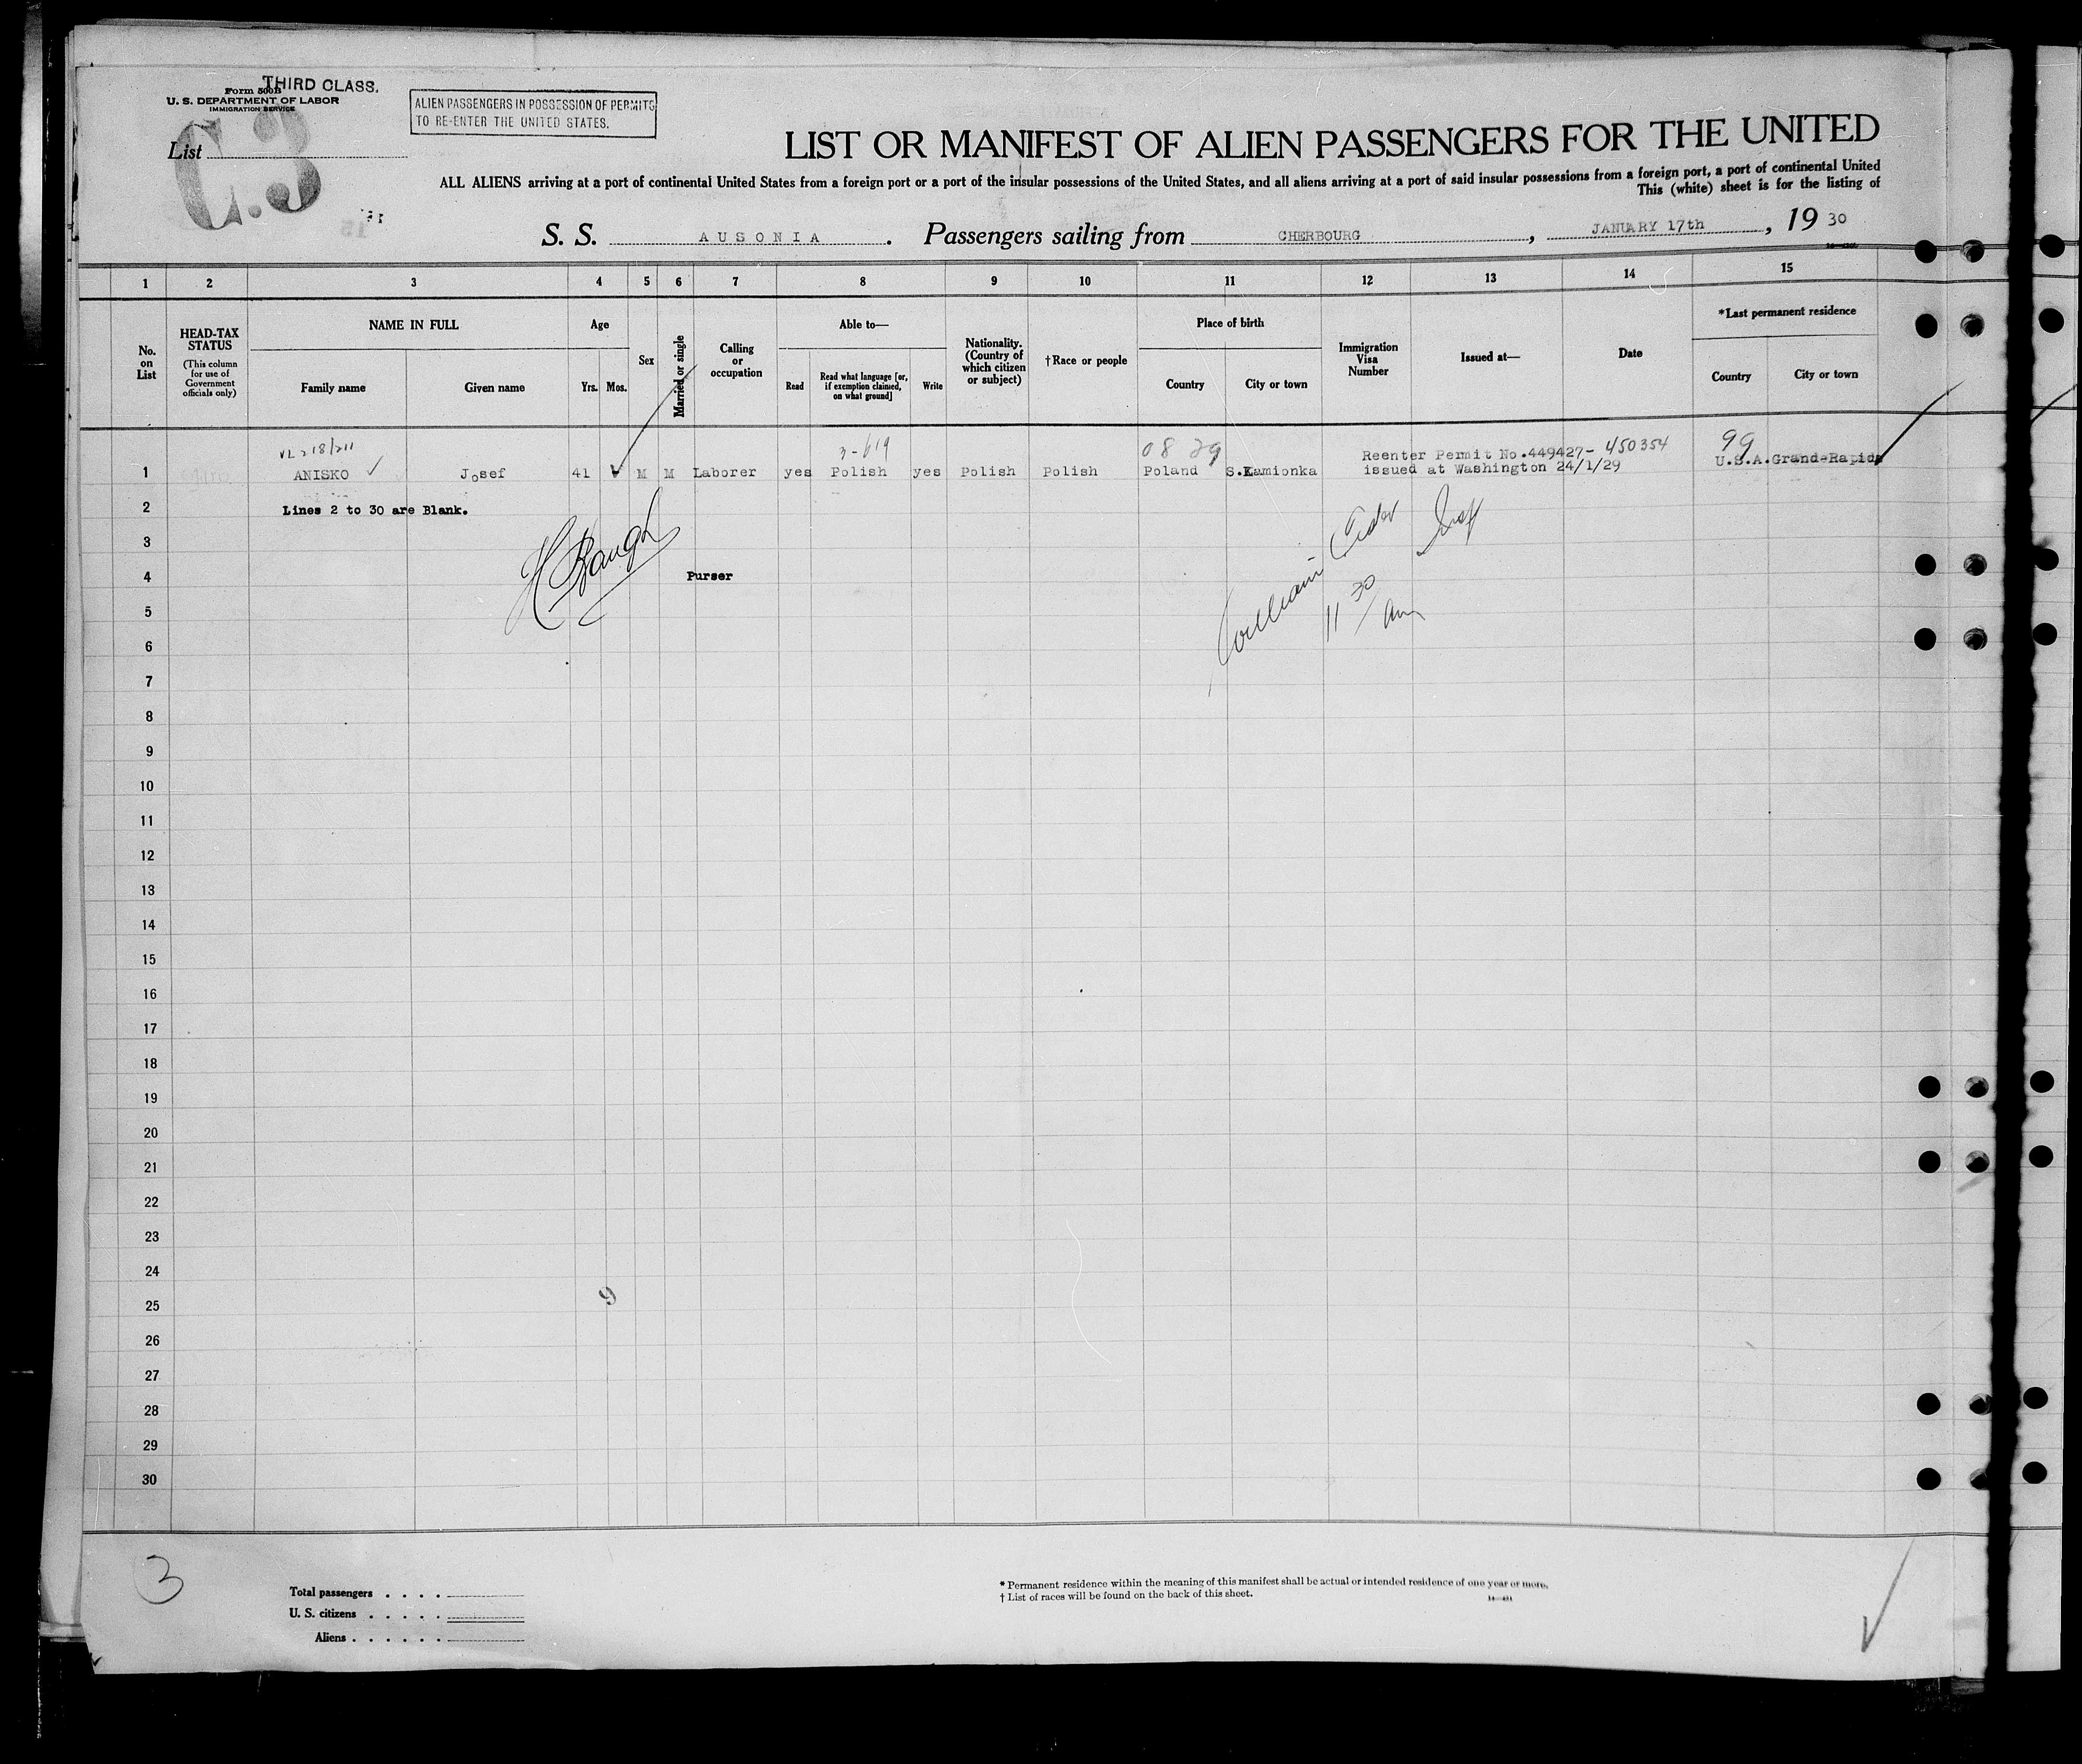 THIRD CLASS.
Form 500B
U. S. DEPARTMENT OF LABOR
IMMIGRATION SERVICE
List C.3
ALIEN PASSENGERS IN POSSESSION OF PERMITS
TO RE-ENTER THE UNITED STATES.
LIST OR MANIFEST OF ALIEN PASSENGERS FOR THE UNITED
ALL ALIENS arriving at a port of continental United States from a foreign port or a port of the insular possessions of the United States, and all aliens arriving at a port of said insular possessions from a foreign port, a port of continental United
This (white) sheet is for the listing of
S. S. AUSONIA. Passengers sailing from CHERBOURG, JANUARY 17th, 19 30
1 2 3 4 5 6 7 8 9 10 11 12 13 14 15
No. on List
HEAD-TAX STATUS
(This column for use of Government officials only)
NAME IN FULL
Family name
Given name
Age
Yrs. Mos.
Sex
Married or single
Calling or occupation
Able to—
Read
Read what language [or, if exemption claimed, on what ground]
Write
Nationality. (Country of which citizen or subject)
†Race or people
Place of birth
Country
City or town
Immigration Visa Number
Issued at—
Date
*Last permanent residence
Country
City or town
3-619 08 29 450354 99
1 ANISKO Josef 41 M M Laborer yes Polish yes Polish Polish Poland S.Kamionka Reenter Permit No.449427-
issued at Washington 24/1/29 U.S.A. Grand-Rapids
2 Lines 2 to 30 are Blank.
3
4 Purser
5
6
7
8
9
10
11
12
13
14
15
16
17
18
19
20
21
22
23
24
25
26
27
28
29
30
H Baugh
William
11 30/am
9
3
Total passengers . . . .
U. S. citizens . . . . .
Aliens . . . . . .
* Permanent residence within the meaning of this manifest shall be actual or intended residence of one year or more.
† List of races will be found on the back of this sheet.